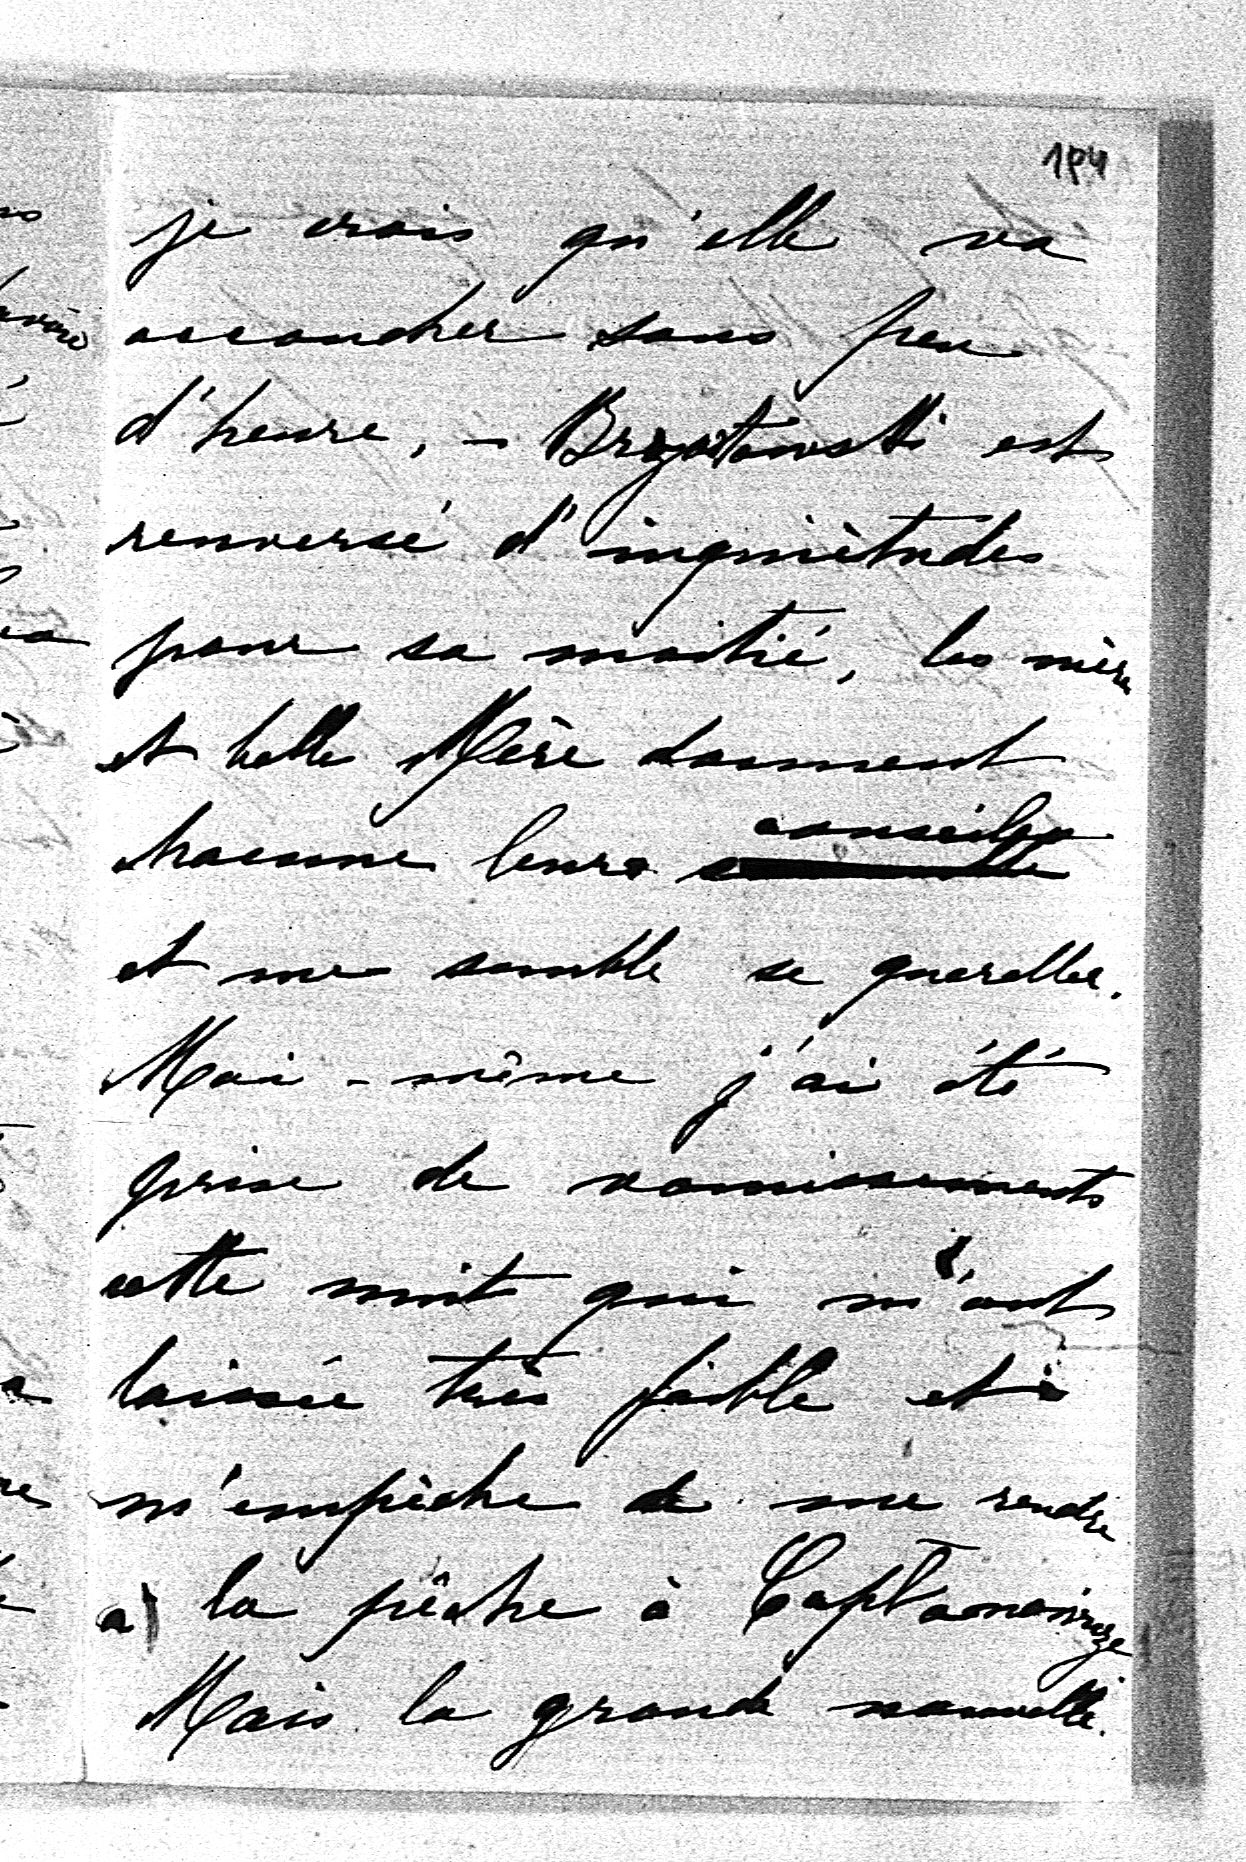 194
je crois qu'elle va
accoucher sous peu
d'heure, – Brzostowski est
renversé d'inquiètudes
pour sa moitié, les mère
et belle Mère donnent
chacune leurs conseils
et me semble se quereller.
Moi-même j'ai été
prise de vomissements
cette nuit qui m'ont
laissée très faible et
m'empèche de me rendre
a la pêche à
Mais la grande nouvelle.